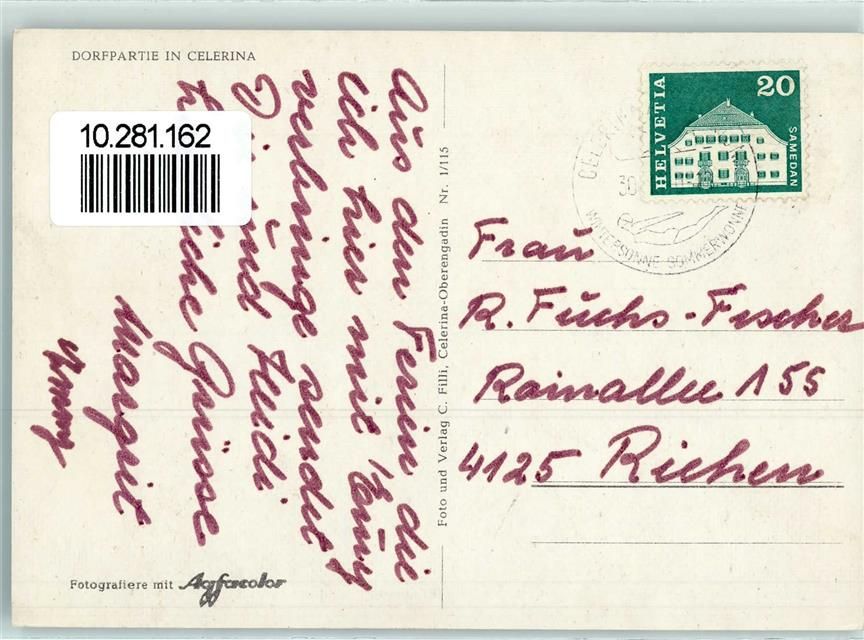 DORFPARTIE IN CELERINA
10.281.162
Aus den Ferien die
ich hier mit Emmy
verbringe sendet
Dir und Heidi
Grüsse
Margrit
Emmy
Fotografiere mit Agfacolor
Foto und Verlag C. Filli, Celerina-Oberengadin Nr. 1/115
HELVETIA
20
SAMEDAN
CELERINA
30
WINTERSONNE SOMMERWONNE
Frau
R. Fuchs-Fischer
Rainallee 155
4125 Riehen